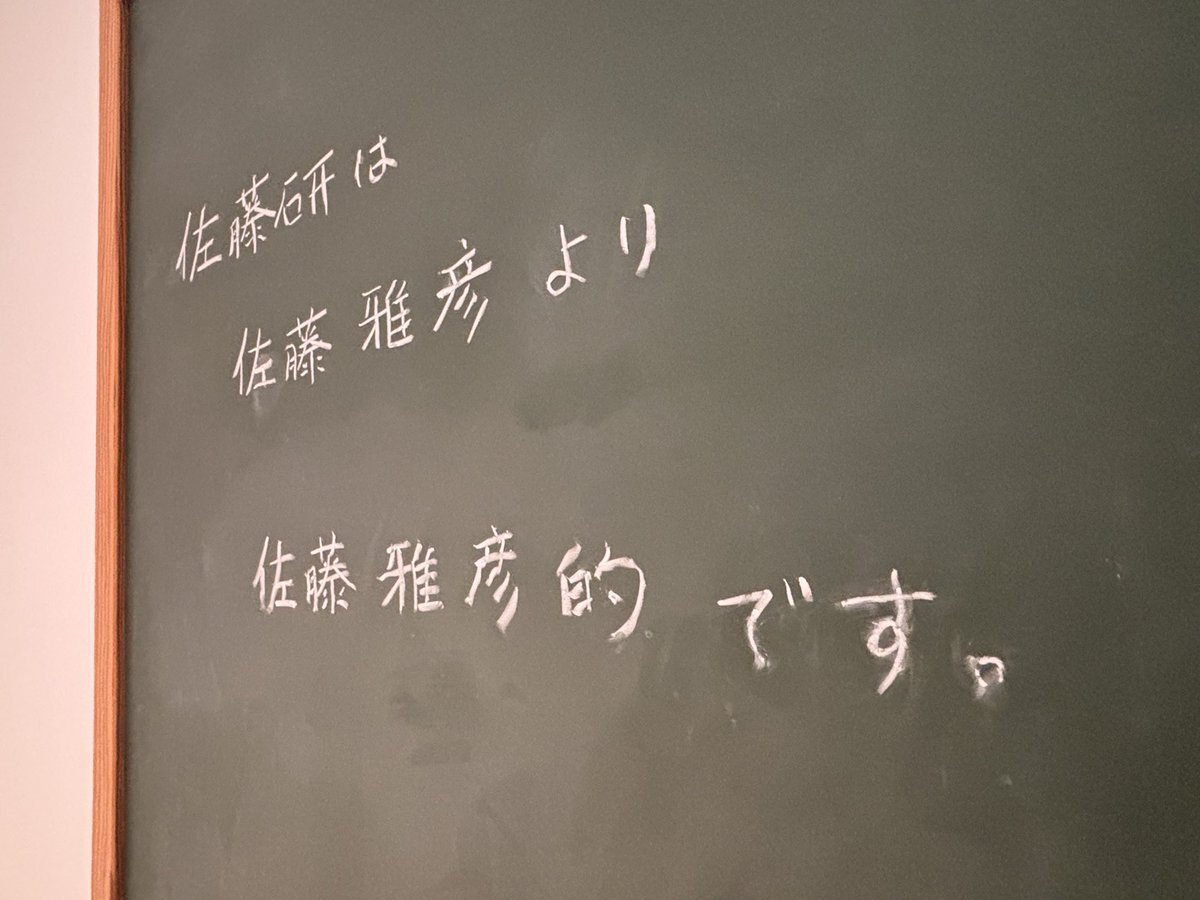 佐藤研は
佐藤雅彦より
佐藤雅彦的です。